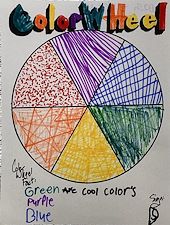 Color Wheel
Color
Wheel
Fact:
Green are cool color's
Purple
Blue